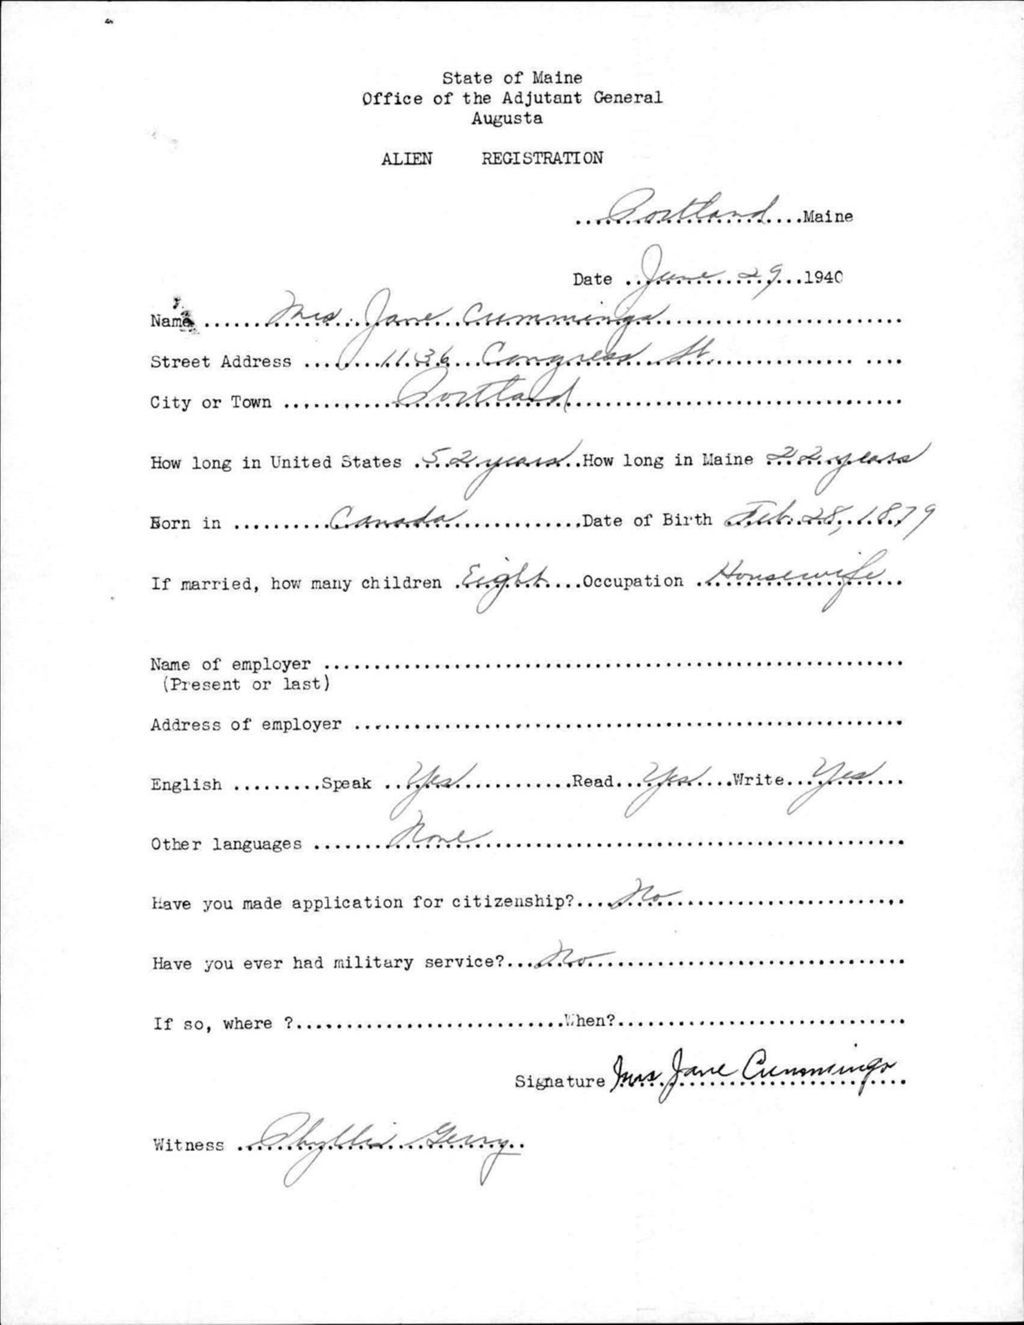 State of Maine
Office of the Adjutant General
Augusta
ALIEN REGISTRATION
...Portland...Maine
Date ..June 29...1940
Name ......Mrs Jane Cummings......
Street Address ......1136 Congress St.......
City or Town ......Portland......
How long in United States .52 years..How long in Maine 22 years
Born in ......Canada......Date of Birth Feb. 28, 1879
If married, how many children .Eight....Occupation .Housewife..
Name of employer ......
(Present or last)
Address of employer ......
English .........Speak ..Yes......Read...Yes....Write...Yes...
Other languages .......None......
Have you made application for citizenship?....No......
Have you ever had military service?...No......
If so, where ?......When?......
Signature Mrs Jane Cummings
Witness ..Phyllis Gerry..